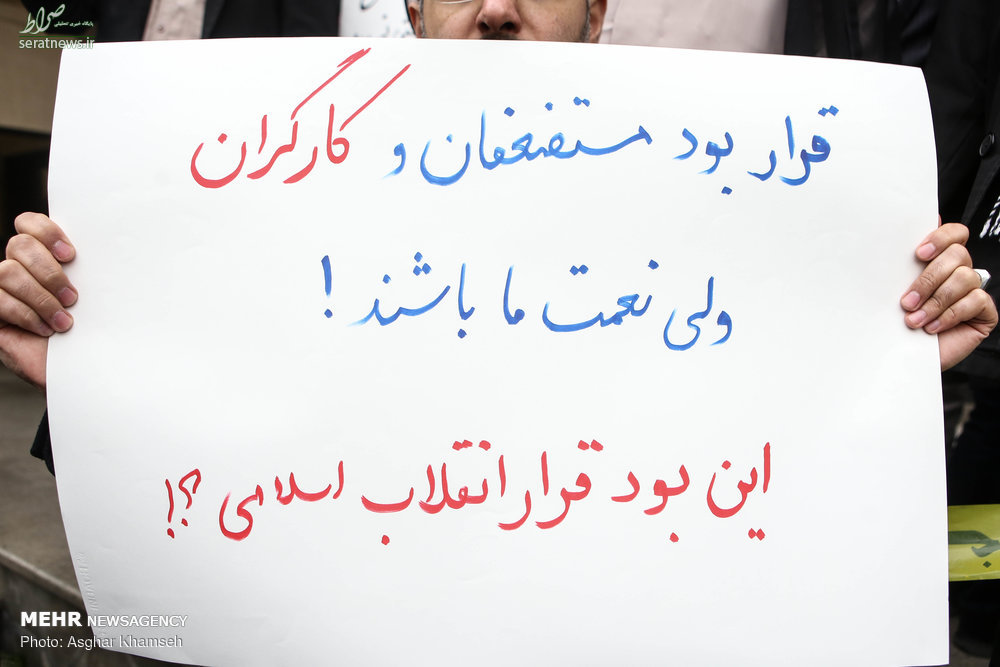 صراط
پایگاه خبری تحلیلی
seratnews.ir
قرار بود مستضعفان و کارگران
ولی نعمت ما باشند!
این بود قرار انقلاب اسلامی؟!
MEHR NEWSAGENCY
Photo: Asghar Khamseh